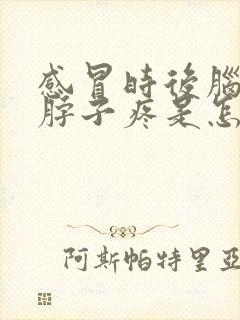 感冒時後腦
脖子疼是怎
阿斯帕特里亞